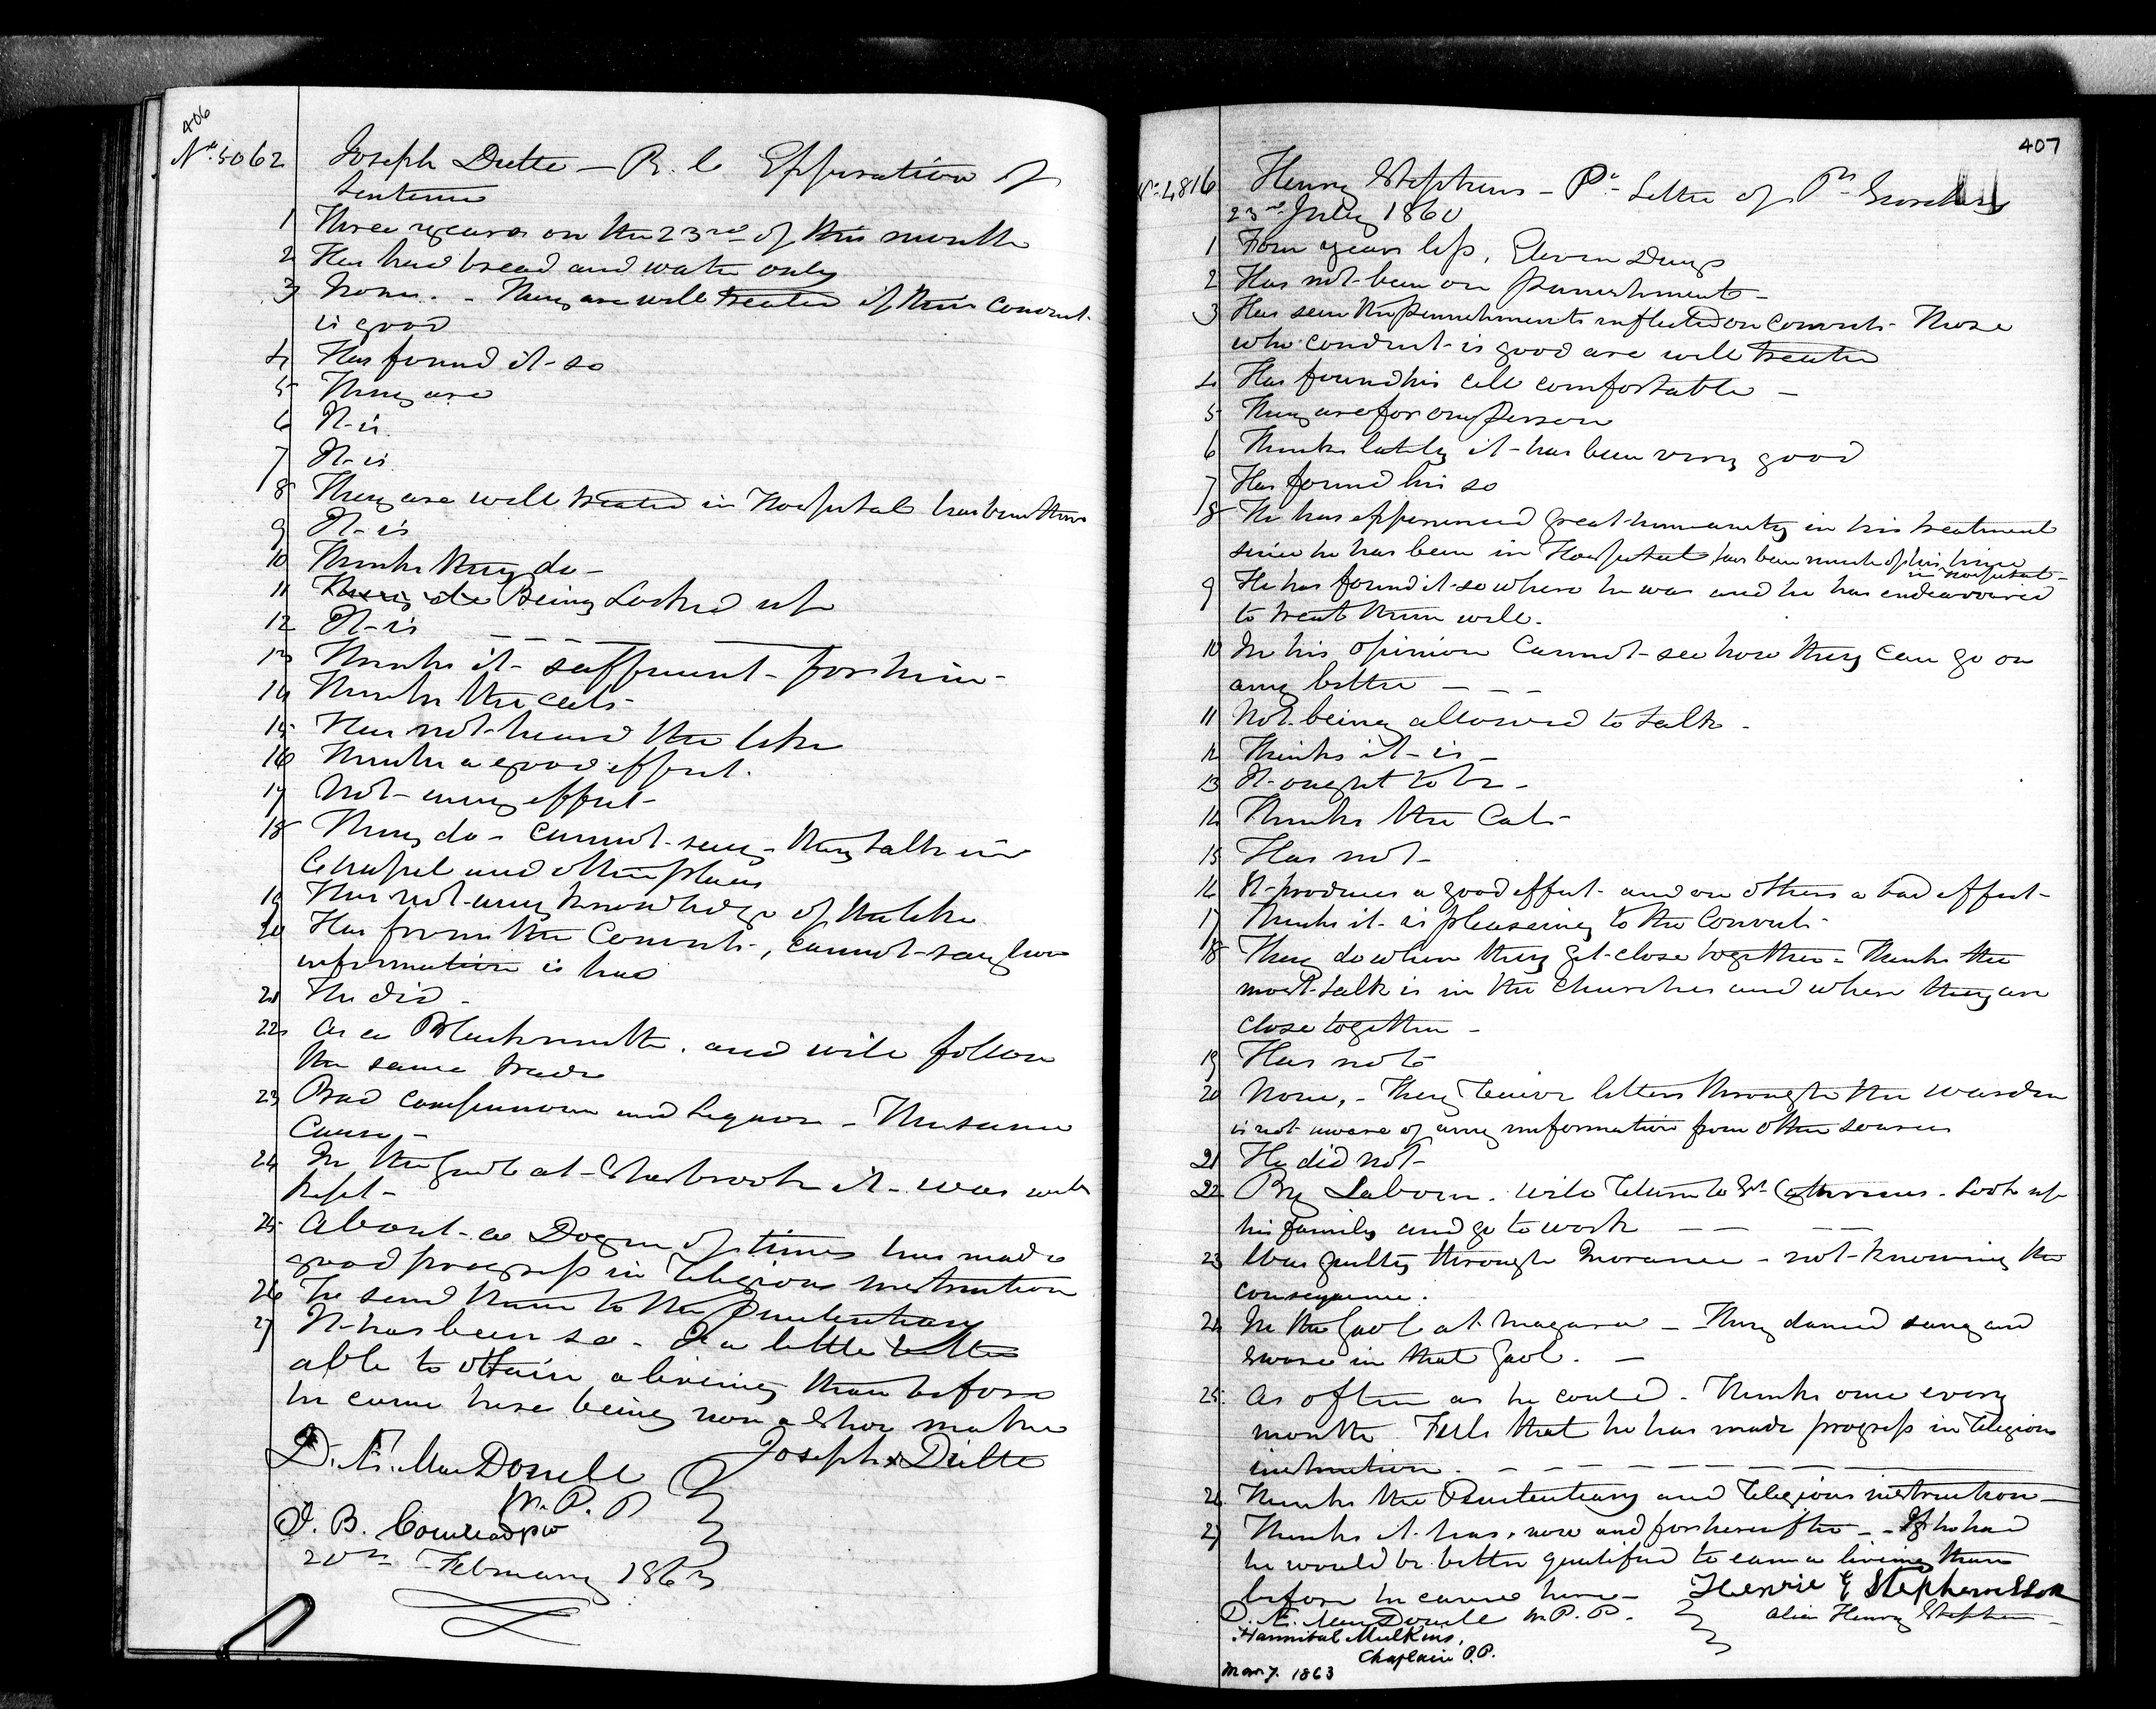 406
No. 5062 Joseph Dulte — R. C Expiration of
Sentence
1 Three years on the 23rd of this month
2 Has had bread and water only
3 None. - They are well treated if their conduct
is good
4 Has found it so
5 They are
6 It is
7 It is
8 They are well treated in Hospital has been there
9 It is
10 Thinks they do -
11 Being Locked up
12 It is
13 Thinks it sufficient - for him -
14 Thinks the cats
15 Has not heard the like
16 Thinks a good effect.
17 Not any effect -
18 They do - cannot say - they talk in
Chapel and other places
19 Has not any knowledge of the like
20 Has from the Convicts, cannot say how
information is had
21 He did -
22 As a Blacksmith. and will follow
the same trade
23 Bad companions and Liquor - The same
Cause -
24 In the Gaol at Sherbrook it was well
kept -
25 About a Dozen of times has made
good progress in Religious instruction
26 To send them to the Penitentiary
27 It has been so - Is a little better
able to obtain a living than before
he came here being now a Shoe maker
D. Æ. MacDonell Joseph x Dulte
W. P. P
20th February 1863
407
No. 4816 Henry Stephens - Pt Letter of Pl Secretary
23rd July 1860
1 Four years less, Eleven Days
2 Has not been on punishment -
3 Has seen the punishments inflicted on Convicts - Those
who conduct is good are well treated
4 Has found his cell comfortable -
5 They are for any person
6 Thinks lately it has been very good
7 Has found his so
8 He has experienced great humanity in his treatment
since he has been in Hospital has been much of his time
in Hospital -
9 He has found it so where he was and he has endeavoured
to treat them well.
10 In his opinion Cannot see how they can go on
any better - - -
11 Not being allowed to talk -
12 Thinks it is -
13 It ought to be -
14 Thinks the Cats -
15 Has not -
16 It produces a good effect - and on others a bad effect -
17 Thinks it is pleasing to the Convicts -
18 They do when they get close together - Thinks the
most talk is in the Churches and when they are
close together -
19 Has not
20 None, - They receive letters through the Warden
is not aware of any information from other sources
21 He did not -
22 By Labour. will return to St Catherines - Look up
his family and go to work — —
23 Was guilty through Ignorance - not knowing the
consequence.
24 In the Gaol at Niagara - They danced sang and
swore in that Gaol. -
25 As often as he could - Thinks once every
month Feels that he has made progress in religious
instruction. - - -
26 Thinks the Penitentiary and religious instruction -
27 Thinks it has, now and for hereafter - - If he had
he would be better qualified to earn a living than
before he came here - Henrie E Stephensson
D. Æ. MacDonell W. P. P. alias Henry Stephens
Hannibal Mulkins,
Chaplain P.P.
Mar 7. 1863